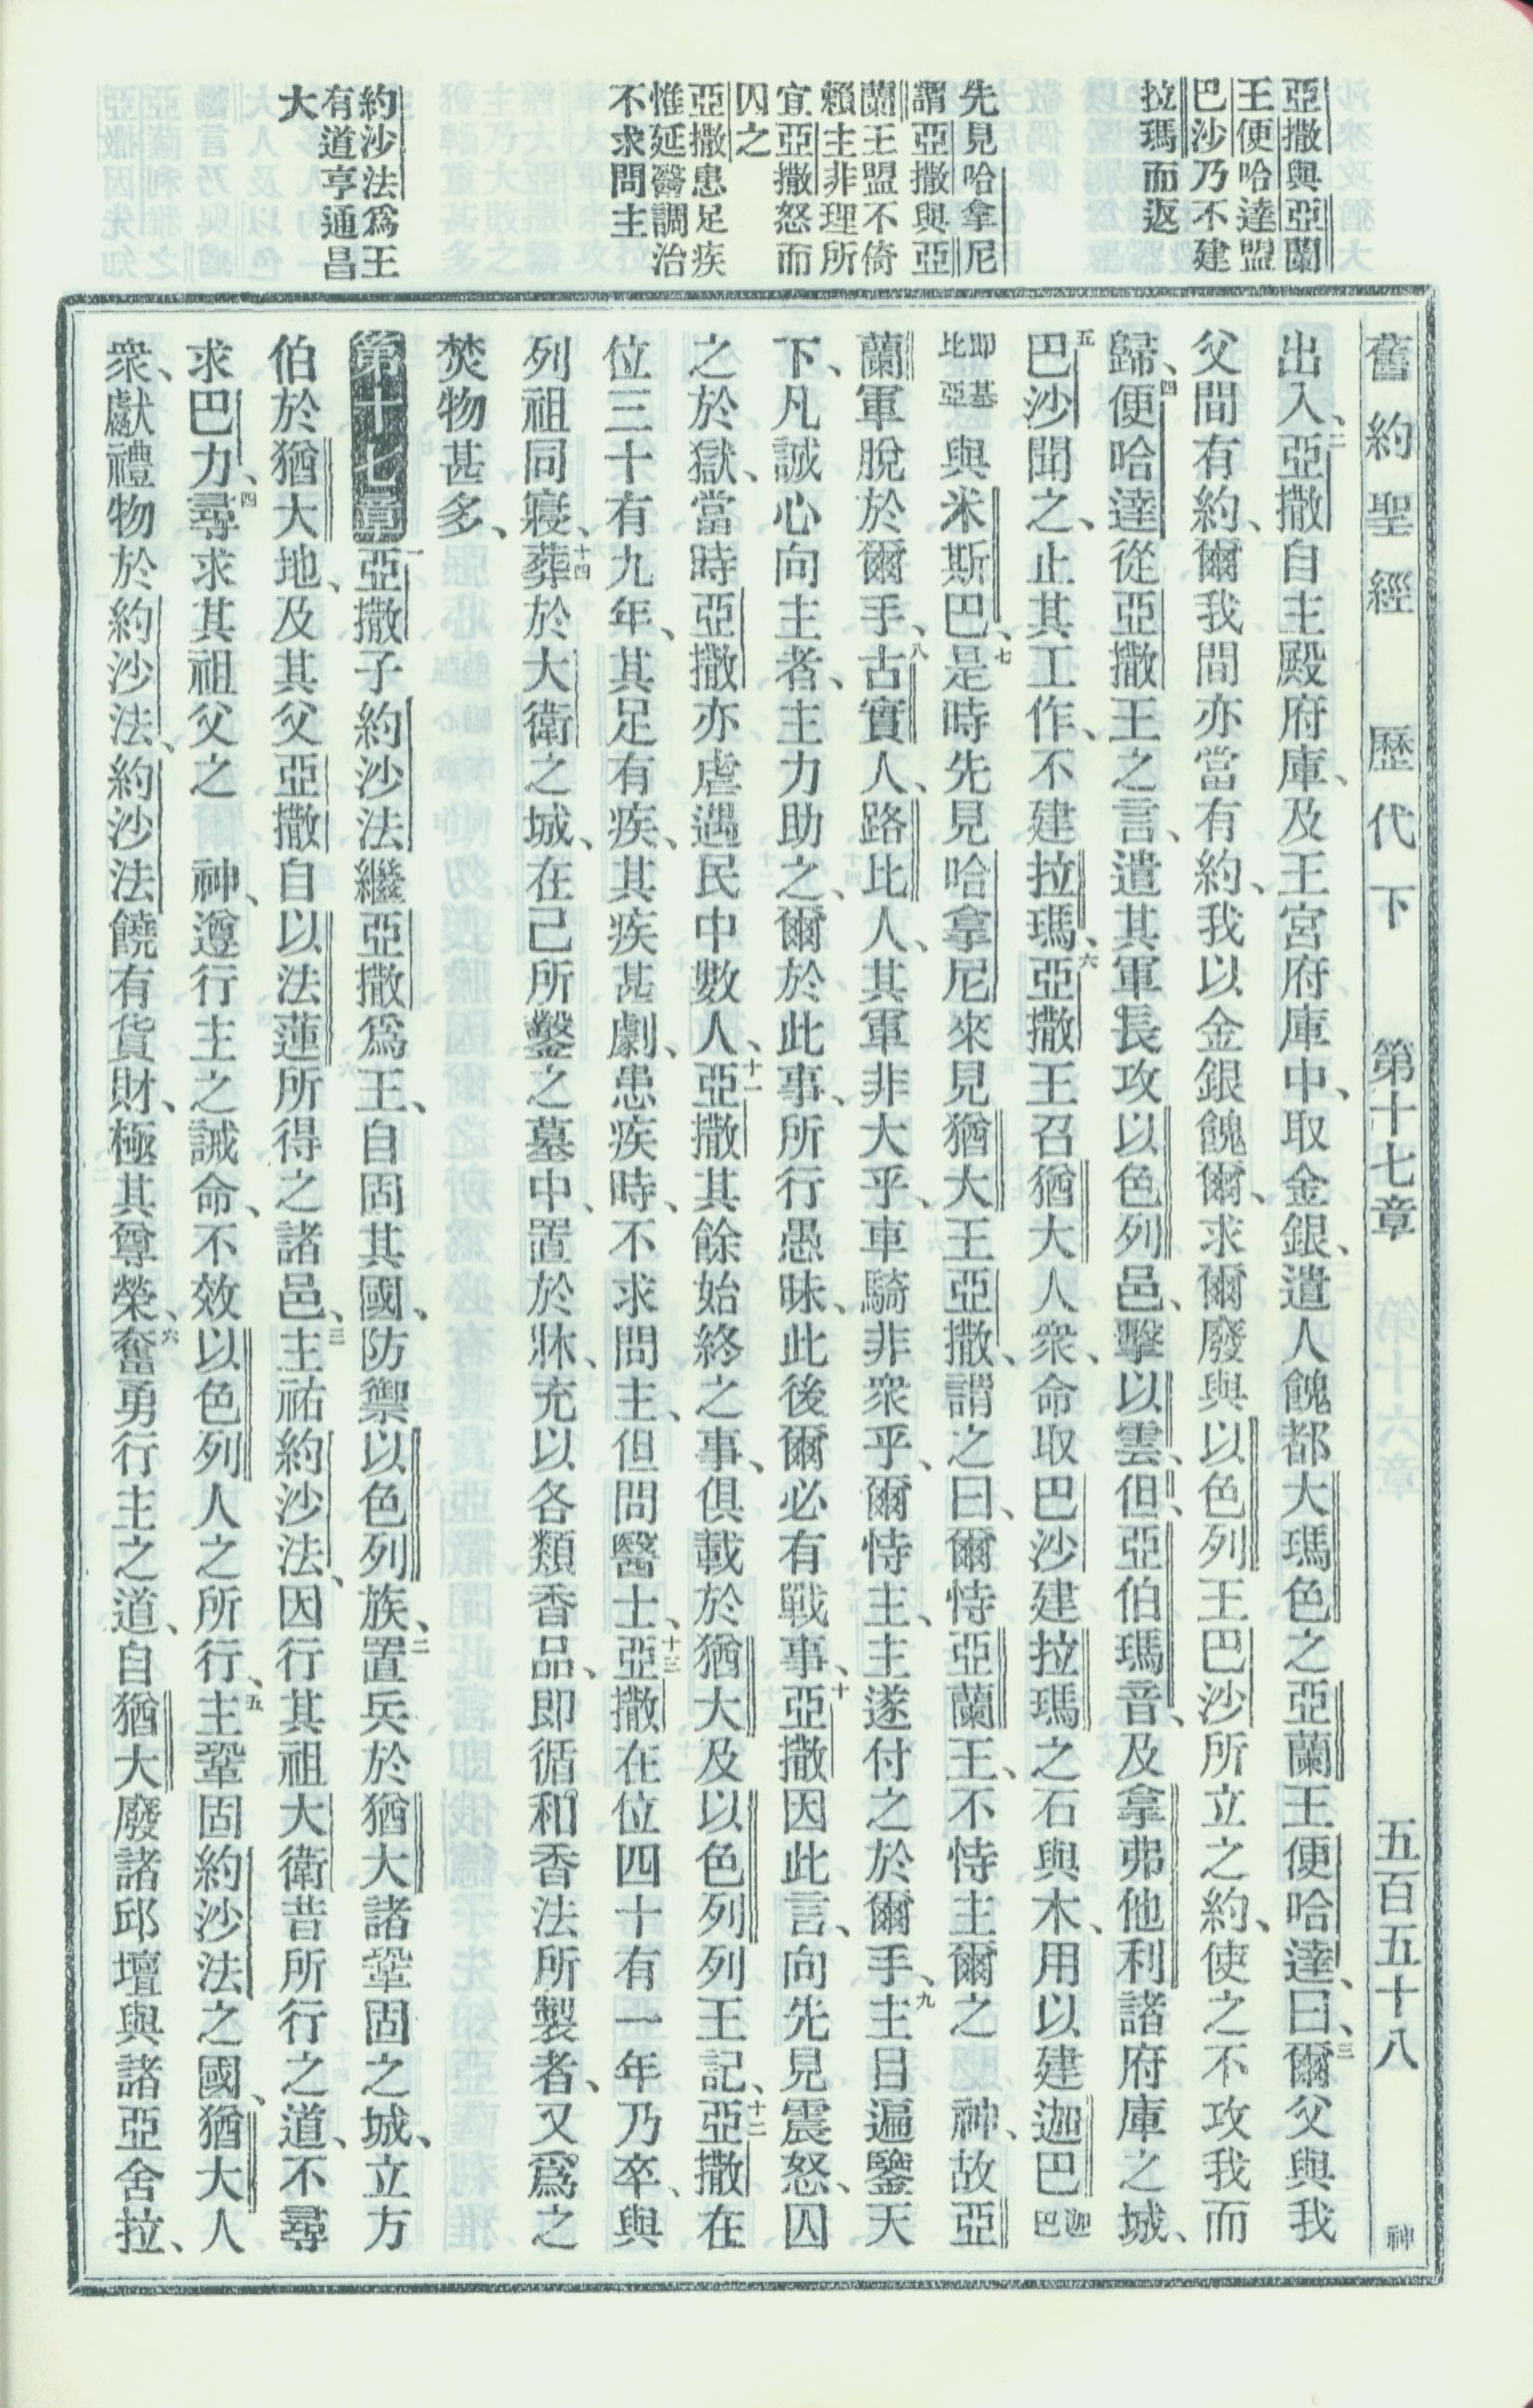 亞撒與亞蘭
王便哈達盟
巴沙乃不建
拉瑪而返
先見哈拿尼
謂亞撒與亞
蘭王盟不倚
賴主非理所
宜亞撒怒而
囚之
亞撒患足疾
惟延醫調治
不求問主
約沙法爲王
有道亨通昌
大
舊約聖經 歷代下 第十七章 五百五十八 神
出入、二亞撒自主殿府庫、及王宮府庫中、取金銀、遣人餽都大瑪色之亞蘭王便哈達、曰、三爾父與我
父間有約、爾我間亦當有約、我以金銀餽爾、求爾廢與以色列王巴沙所立之約、使之不攻我而
歸、四便哈達從亞撒王之言、遣其軍長攻以色列邑、擊以雲、但、亞伯瑪音、及拿弗他利諸府庫之城、
五巴沙聞之、止其工作、不建拉瑪、六亞撒王召猶大人衆、命取巴沙建拉瑪之石與木、用以建迦巴迦巴
即基比亞與米斯巴、七是時先見哈拿尼來見猶大王亞撒、謂之曰、爾恃亞蘭王、不恃主爾之 神、故亞
蘭軍脫於爾手、八古實人、路比人、其軍非大乎、車騎非衆乎、爾恃主、主遂付之於爾手、九主目遍鑒天
下、凡誠心向主者、主力助之、爾於此事、所行愚昧、此後爾必有戰事、十亞撒因此言、向先見震怒、囚
之於獄、當時亞撒亦虐遇民中數人、十一亞撒其餘始終之事、俱載於猶大及以色列列王記、十二亞撒在
位三十有九年、其足有疾、其疾甚劇、患疾時、不求問主、但問醫士、十三亞撒在位四十有一年乃卒、與
列祖同寢、十四葬於大衛之城、在己所鑿之墓中、置於牀、充以各類香品、即循和香法所製者、又爲之
焚物甚多、
第十七章 一亞撒子約沙法繼亞撒爲王、自固其國、防禦以色列族、二置兵於猶大諸鞏固之城、立方
伯於猶大地、及其父亞撒自以法蓮所得之諸邑、三主祐約沙法、因行其祖大衛昔所行之道、不尋
求巴力、四尋求其祖父之 神、遵行主之誡命、不效以色列人之所行、五主鞏固約沙法之國、猶大人
衆、獻禮物於約沙法、約沙法饒有貨財、極其尊榮、六奮勇行主之道、自猶大廢諸邱壇與諸亞舍拉、